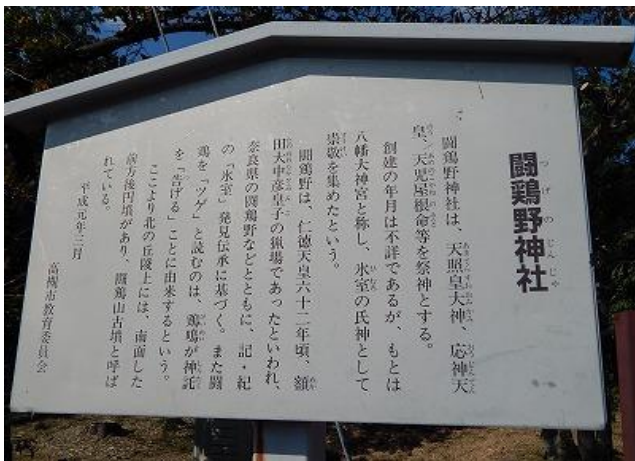 闘鶏野神社
つげのじんじゃ
闘鶏野神社は、天照皇大神、応神天
皇、天児屋根命等を祭神とする。
創建の年月は不詳であるが、もとは
八幡大神宮と称し、氷室の氏神として
崇敬を集めたという。
闘鶏野は、仁徳天皇六十二年頃、額
田大中彦皇子の猟場であったといわれ、
奈良県の闘鶏野などとともに、記・紀
の「氷室」発見伝承に基づく。また闘
鶏を「ツゲ」と読むのは、鶏鳴が神託
を「告げる」ことに由来するという。
ここより北の丘陵上には、南面した
前方後円墳があり、闘鶏山古墳と呼ば
れている。
平成元年三月
高槻市教育委員会